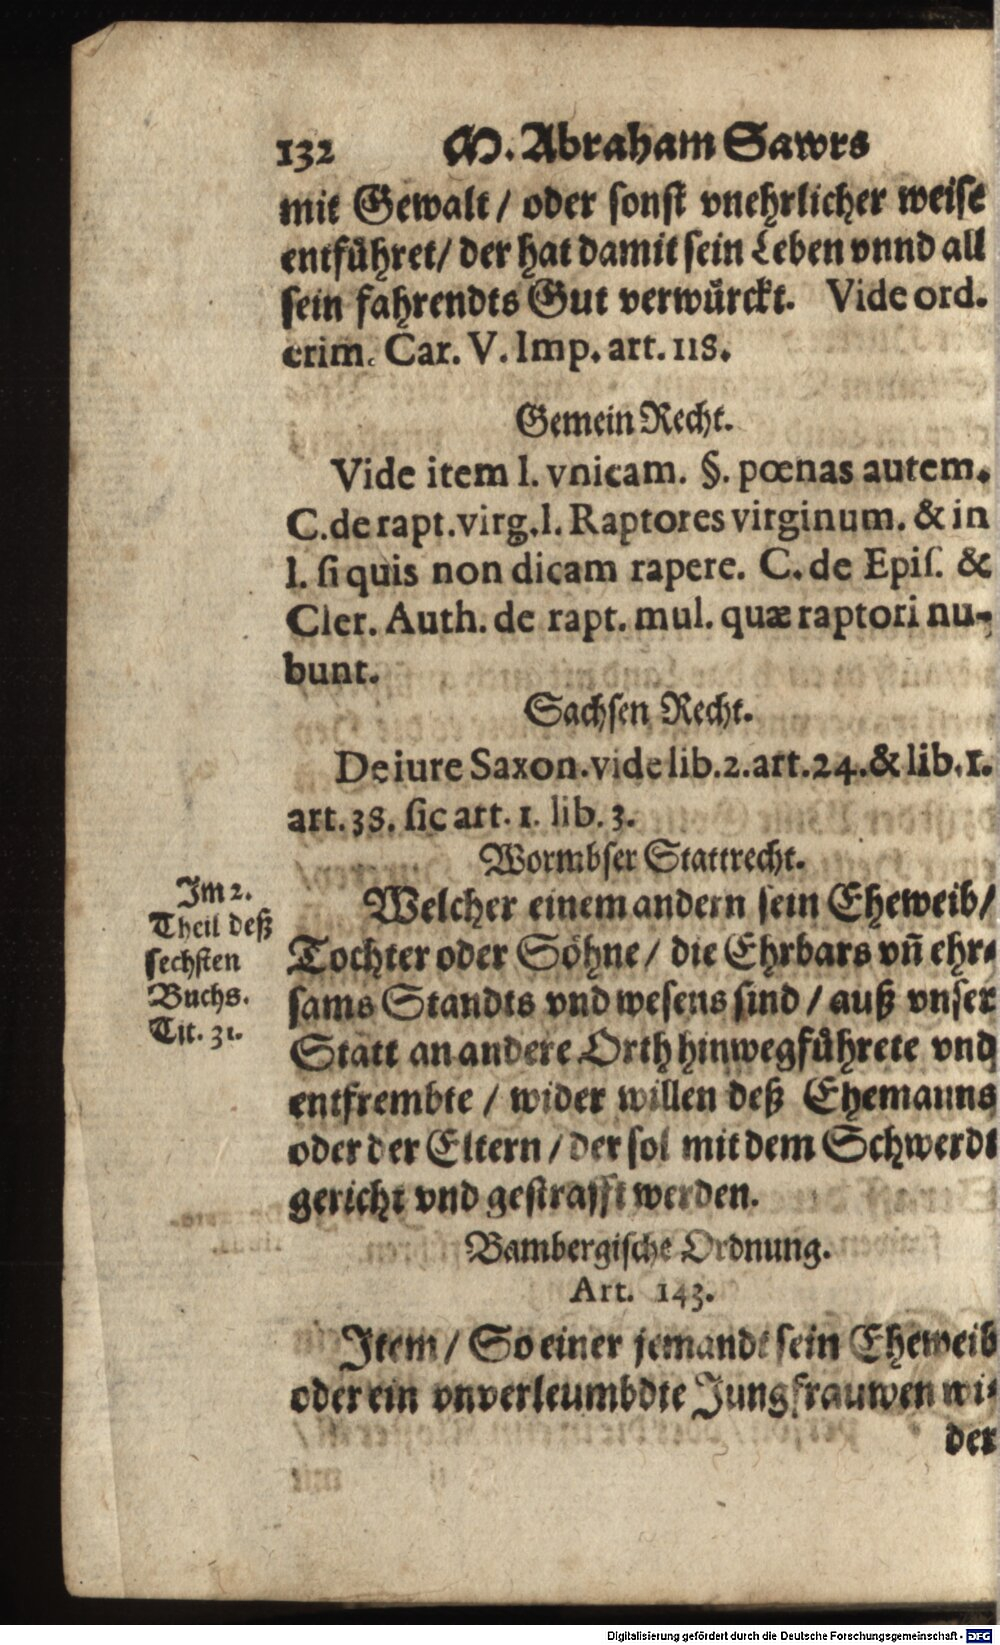 132 M. Abraham Sawrs
mit Gewalt / oder sonst vnehrlicher weise
entfuͤhret / der hat damit sein Leben vnnd all
sein fahrendts Gut verwuͤrckt. Vide ord.
crim. Car. V. Imp. art. 118.
Gemein Recht.
Vide item l. vnicam. §. pœnas autem.
C. de rapt. virg. l. Raptores virginum. & in
l. ſi quis non dicam rapere. C. de Epiſ. &
Cler. Auth. de rapt. mul. quæ raptori nu-
bunt.
Sachsen Recht.
De iure Saxon. vide lib. 2. art. 24. & lib. 1.
art. 38. ſic art. 1. lib. 3.
Wormbser Stattrecht.
Im 2.
Theil deß
sechsten
Buchs.
Tit. 31.
Welcher einem andern sein Eheweib /
Tochter oder Soͤhne / die Ehrbars vñ ehr-
sams Standts vnd wesens sind / auß vnser
Statt an andere Orth hinwegfuͤhrete vnd
entfrembte / wider willen deß Ehemanns
oder der Eltern / der sol mit dem Schwerdt
gericht vnd gestrafft werden.
Bambergische Ordnung.
Art. 143.
Item / So einer jemandt sein Eheweib
oder ein vnverleumbdte Jungfrauwen wi-
der
Digitalisierung gefördert durch die Deutsche Forschungsgemeinschaft - DFG